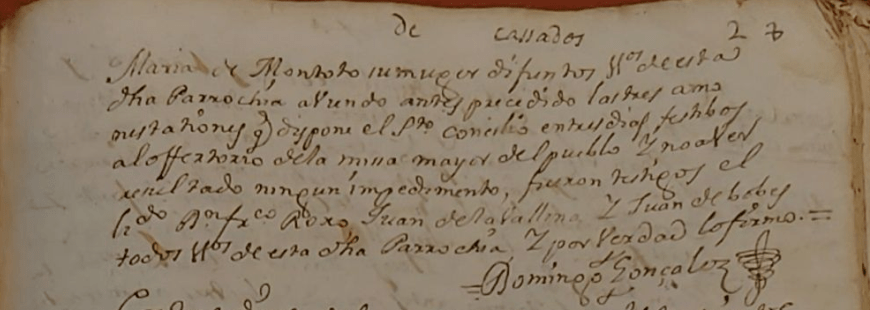 de cassados 27
Maria de Montoto su muger difuntos Vos de esta
dha Parrochia aviendo antes precedido las tres amo
nestaçiones q dispone el Sto Concilio en tres dias festibos
al offertorio de la missa mayor del pueblo Y no aver
resultado ningun impedimento, fueron testigos el
Lido Dn frco Roxo Juan de la Vallina Y Juan de bobes
todos Vos de esta dha Parrochia, Y por Verdad lo firmo. =
= Domingo Gonçalez